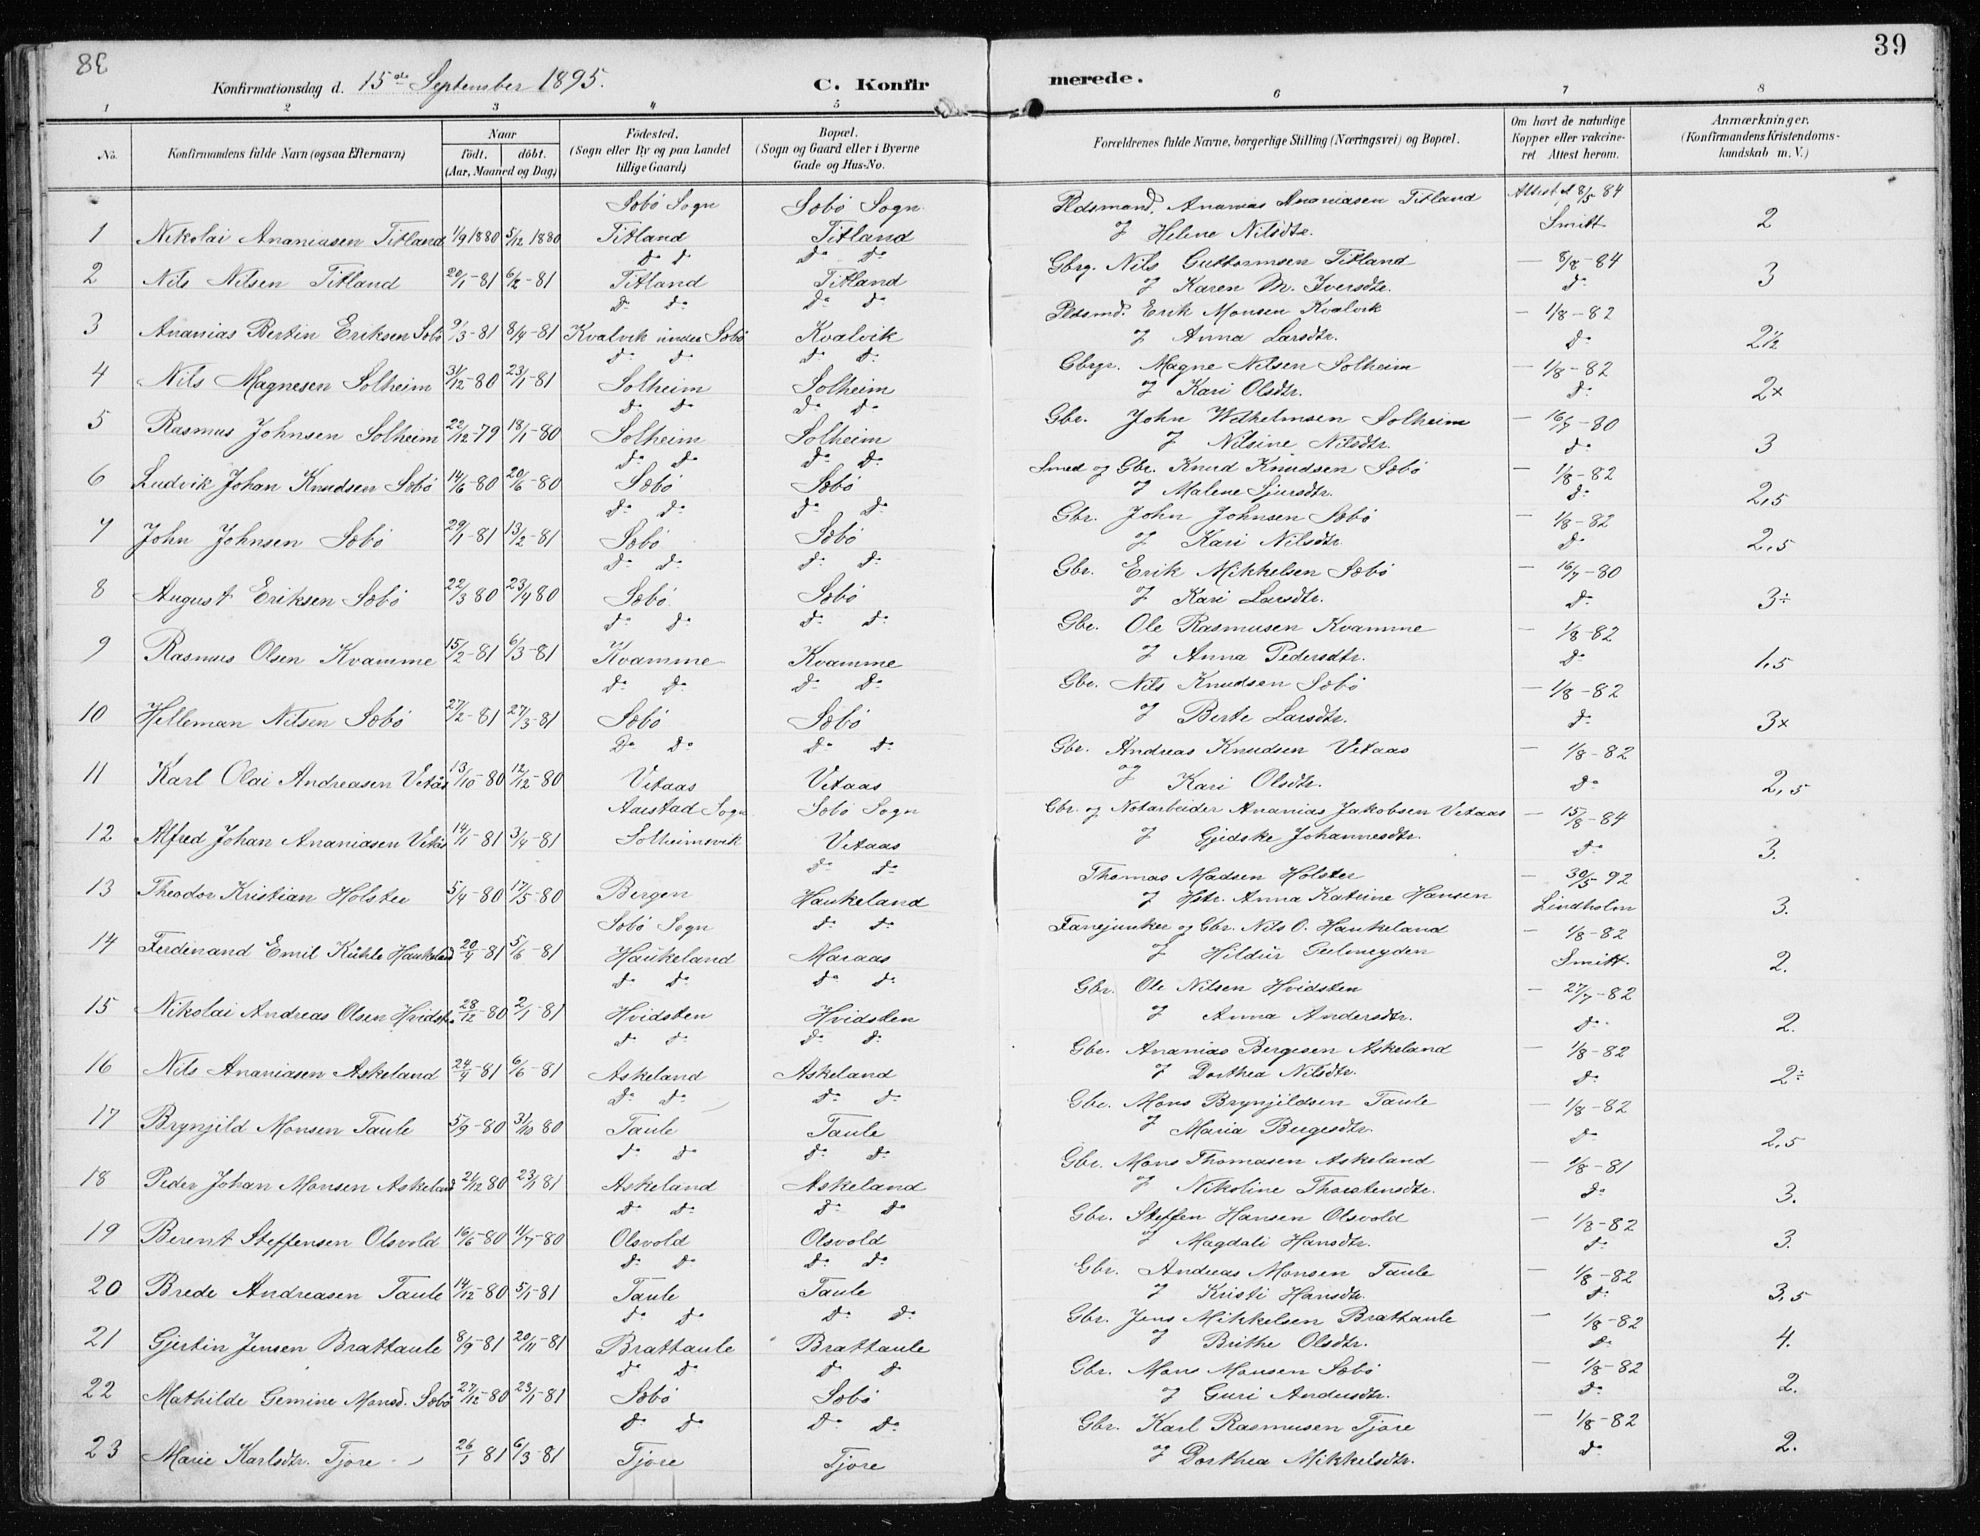 38
39
Konfirmationsdag d. 15de September 1895. C. Konfirmerede.
1 2 3 4 5 6 7 8
No. Konfirmandens fulde Navn (ogsaa Efternavn) Naar födt. döbt. (Aar, Maaned og Dag) Födested. (Sogn eller By og paa Landet tillige Gaard) Bopæl. (Sogn og Gaard eller i Byerne Gade og Hus-No. Forældrenes fulde Navne, borgerlige Stilling (Næringsvei) og Bopæl. Om havt de naturlige Kopper eller vakcineret. Attest herom. Anmærkninger. (Konfirmandens Kristendomskundskab m. V.)
Sæbö Sogn Sæbö Sogn Pldsmand. Ananias Ananiasen Titland Attest d 8/5 84
1 Nikolai Ananiasen Titland 1/9 1880 5/12 1880 Titland Titland og Helene Nilsdtr. Smitt 2
do do do do Gbrg. Nils Guttormsen Titland — 8/8-84
2 Nils Nilsen Titland 20/1-81 6/2-81 Titland Titland og Karen M. Iversdtr. do 3
do do do do Pldsmd. Erik Monsen Kvalvik — 1/8-82
3 Ananias Bertin Eriksen Sæbö 9/3-81 8/4-81 Kvalvik under Sæbö Kvalvik og Anna Larsdtr. do 2½
do do do do Gbrgr. Magne Nilsen Solheim — 1/8-82
4 Nils Magnesen Solheim 31/12-80 23/1-81 Solheim Solheim og Kari Olsdtr. do 2×
do do do do Gbr. John Wilhelmsen Solheim — 16/7-80
5 Rasmus Johnsen Solheim 22/12-79 18/1-80 Solheim Solheim og Nilsine Nilsdtr. do 3
do do do do Smed og Gbr. Knud Knudsen Sæbö — 1/8-82
6 Ludvik Johan Knudsen Sæbö 14/6-80 20/6-80 Sæbö Sæbö og Malene Sjursdtr. do 2,5
do do do do Gbr. John Johnsen Sæbö — 1/8-82
7 John Johnsen Sæbö 29/1-81 13/2-81 Sæbö Sæbö og Kari Nilsdtr. do 2,5
do do do do Gbr. Erik Mikkelsen Sæbö — 16/7-80
8 August Eriksen Sæbö 22/3 80 23/4 80 Sæbö Sæbö og Kari Larsdtr. do 3÷
do do do do Gbr. Ole Rasmusen Kvamme — 1/8-82
9 Rasmus Olsen Kvamme 15/2-81 6/3-81 Kvamme Kvamme og Anna Pedersdtr. do 1,5
do do do do Gbr. Nils Knudsen Sæbö — 1/8-82
10 Helleman Nilsen Sæbö 27/2-81 27/3-81 Sæbö Sæbö og Berte Larsdtr. do 3×
do do do do Gbr. Andreas Knudsen Vetaas — 1/8-82
11 Karl Olai Andreasen Vetås 13/10-80 12/12-80 Vetaas Vetaas og Kari Olsdtr. do 2,5
Aarstad Sogn Sæbö Sogn Gbr. og Notarbeider Ananias Jakobsen Vetaas — 15/8-84
12 Alfred Johan Ananiasen Vetås 14/1-81 3/4-81 Solheimsvik Vetaas og Gjedske Johannesdtr. do 3.
do do Thomas Madsen Holster — 30/5 92
13 Theodor Kristian Holster 5/4-80 17/5-80 Bergen Haukeland og Hstr. Anna Katrine Hansen Lindholm 3.
Sæbö Sogn do do Fanejunker og Gbr. Nils O. Haukeland — 1/8-82
14 Ferdinand Emil Kühle Haukeland 20/4-81 5/6-81 Haukeland Maraas og Hildur Geelmeyden Smitt 2.
do do do do Gbr. Ole Nilsen Hvidsten — 27/7-82
15 Nikolai Andreas Olsen Hvidst. 28/12-80 2/1-81 Hvidsten Hvidsten og Anna Andersdtr. do 2.
do do do do Gbr. Ananias Bergesen Askeland — 1/8-82
16 Nils Ananiasen Askeland 24/4-81 6/6-81 Askeland Askeland og Dorthea Nilsdtr. do 2÷
do do do do Gbr. Mons Brynjildsen Taule — 1/8-82
17 Brynjild Monsen Taule 5/9-80 31/10 80 Taule Taule og Maria Bergesdtr. do 2,5
do do do do Gbr. Mons Thomasen Askeland — 1/8-81
18 Peder Johan Monsen Askeland 21/12 80 23/1 81 Askeland Askeland og Nikoline Thorstensdtr. do 3.
do do do do Gbr. Steffen Hansen Olsvold — 1/8-82
19 Berent Steffensen Olsvold 16/6-80 11/7-80 Olsvold Olsvold og Magdali Hansdtr. do 3.
do do do do Gbr. Andreas Monsen Taule — 1/8-82
20 Brede Andreasen Taule 14/12-80 5/1-81 Taule Taule og Kristi Hansdtr. do 3,5
do do do do Gbr. Jens Mikkelsen Brattaule — 1/8-82
21 Gjertin Jensen Brattaule 8/9-81 20/11-81 Brattaule Brattaule og Brithe Olsdtr. do 4.
do do do do Gbr. Mons Monsen Sæbö — 1/8-82
22 Mathilde Gemine Monsd. Sæbö 27/12-80 23/1-81 Sæbö Sæbö og Guri Andersdtr. do 2.
do do do do Gbr. Karl Rasmusen Tjore — 1/8-82
23 Marie Karlsdtr. Tjore 26/1 81 6/3-81 Tjore Tjore og Dorthea Mikkelsdtr. do 2.